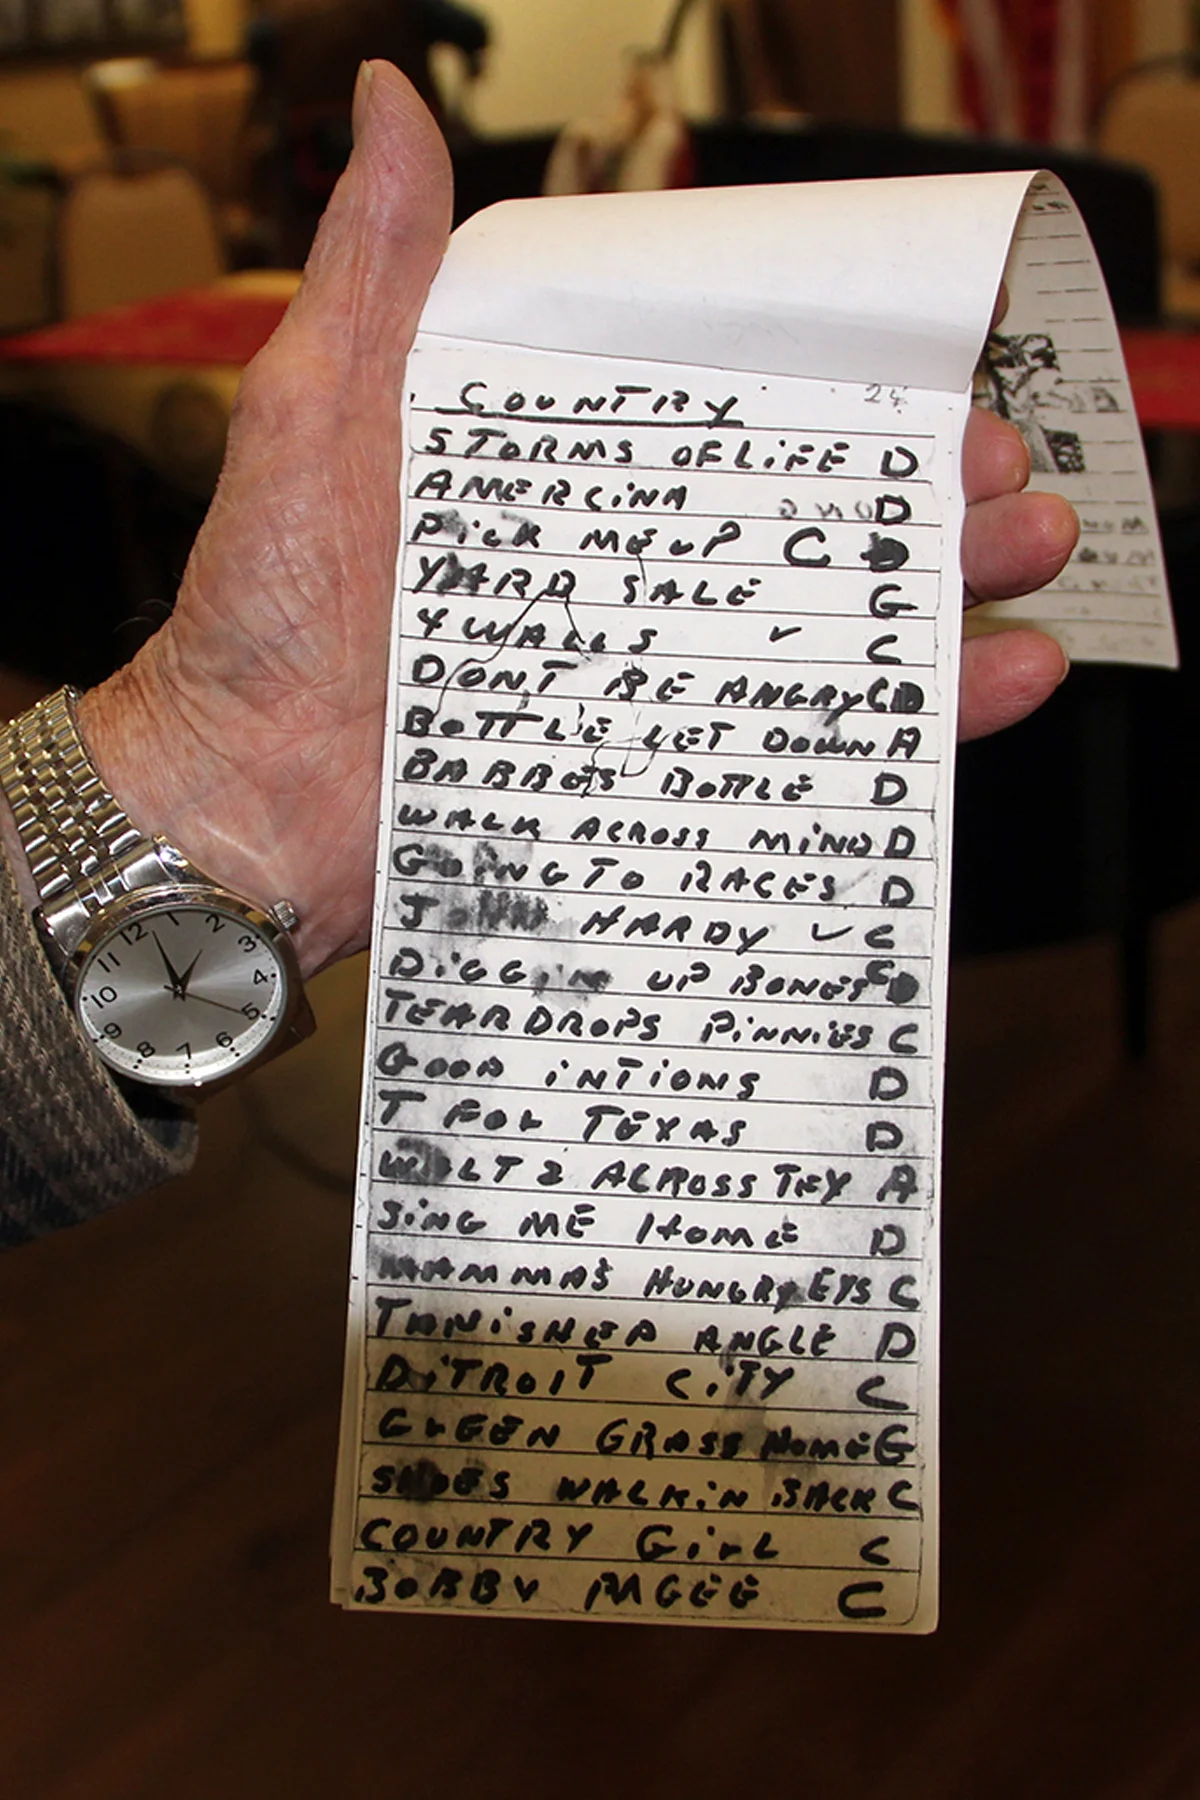 COUNTRY 24
STORMS OF LIFE D
AMERCINA D
PICK ME UP C
YARD SALE G
4 WALLS ✓ C
DONT BE ANGRY C D
BOTTLE LET DOWN A
BABBES BOTTLE D
WALK ACROSS MIND D
GOING TO RACES D
JOHN HARDY ✓ C
DIGGIN UP BONES C D
TEARDROPS PINNIES C
GOOD INTIONS D
T FOR TEXAS D
WALTZ ACROSS TEX A
SING ME HOME D
MAMMAS HUNGRY EYS C
TANISHED ANGLE D
DITROIT CITY C
GREEN GRASS HOME G
SHOES WALKIN BACK C
COUNTRY GIRL C
BOBBY MAGEE C
12 1 2 3 4 5 6 7 8 9 10 11